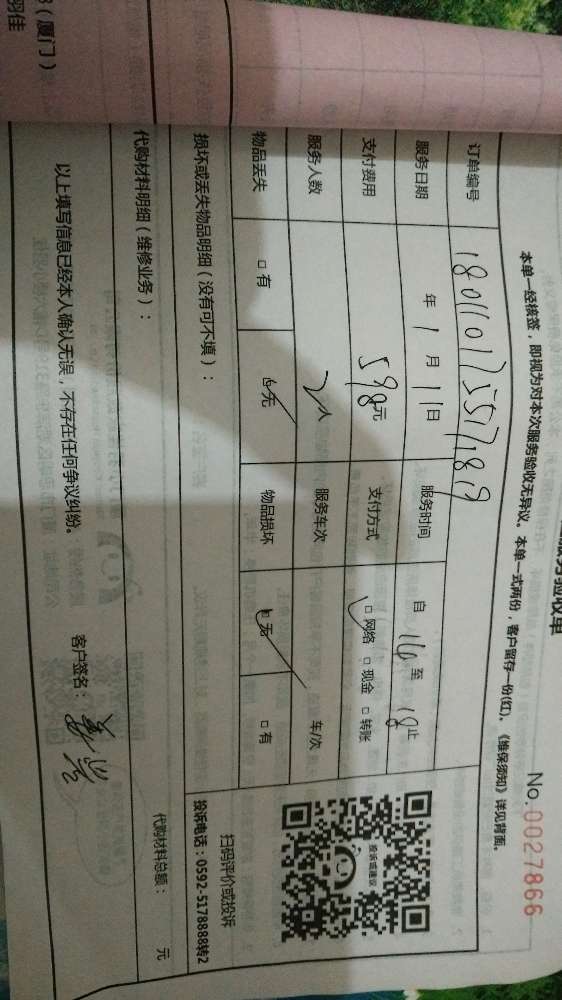 服务验收单
No.0027866
本单一经核签，即视为对本次服务验收无异议。本单一式两份，客户留存一份(红)。《维保须知》详见背面。
订单编号
服务日期 年 1 月 11 日 服务时间 自 16 至 18 止
支付费用 598元 支付方式 □ 网络 □ 现金 □ 转账
服务人数 2人 服务车次 车/次
物品丢失 □ 有 □ 无 物品损坏 □ 无 □ 有
投诉或建议
扫码评价或投诉
投诉电话：0592-5178888转2
损坏或丢失物品明细（没有可不填）：
代购材料明细（维修业务）：
代购材料总额： 元
以上填写信息已经本人确认无误，不存在任何争议纠纷。
客户签名：
（厦门）